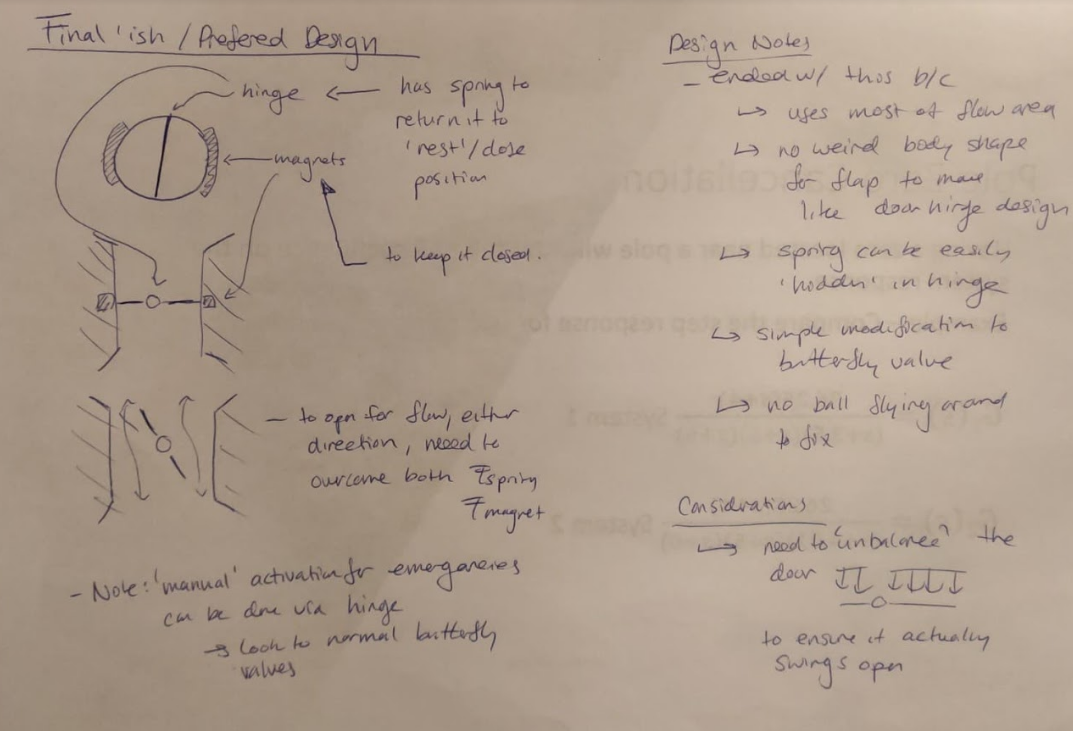 Final 'ish / Prefered Design
hinge ← has spring to
return it to
'rest'/close
position
magnets
to keep it closed.
- to open for flow, either
direction, need to
overcome both Fspring
Fmagnet
- Note: 'manual' activation for emergancies
can be done via hinge
→ look to normal butterfly
valves
Design Notes
- ended w/ this b/c
↳ uses most of flow area
↳ no weird body shape
for flap to move
like door hinge design
↳ spring can be easily
'hidden' in hinge
↳ simple modification to
butterfly valve
↳ no ball flying around
to fix
Considerations
↳ need to "unbalance" the
door
to ensure it actually
swings open
System 1
System 2